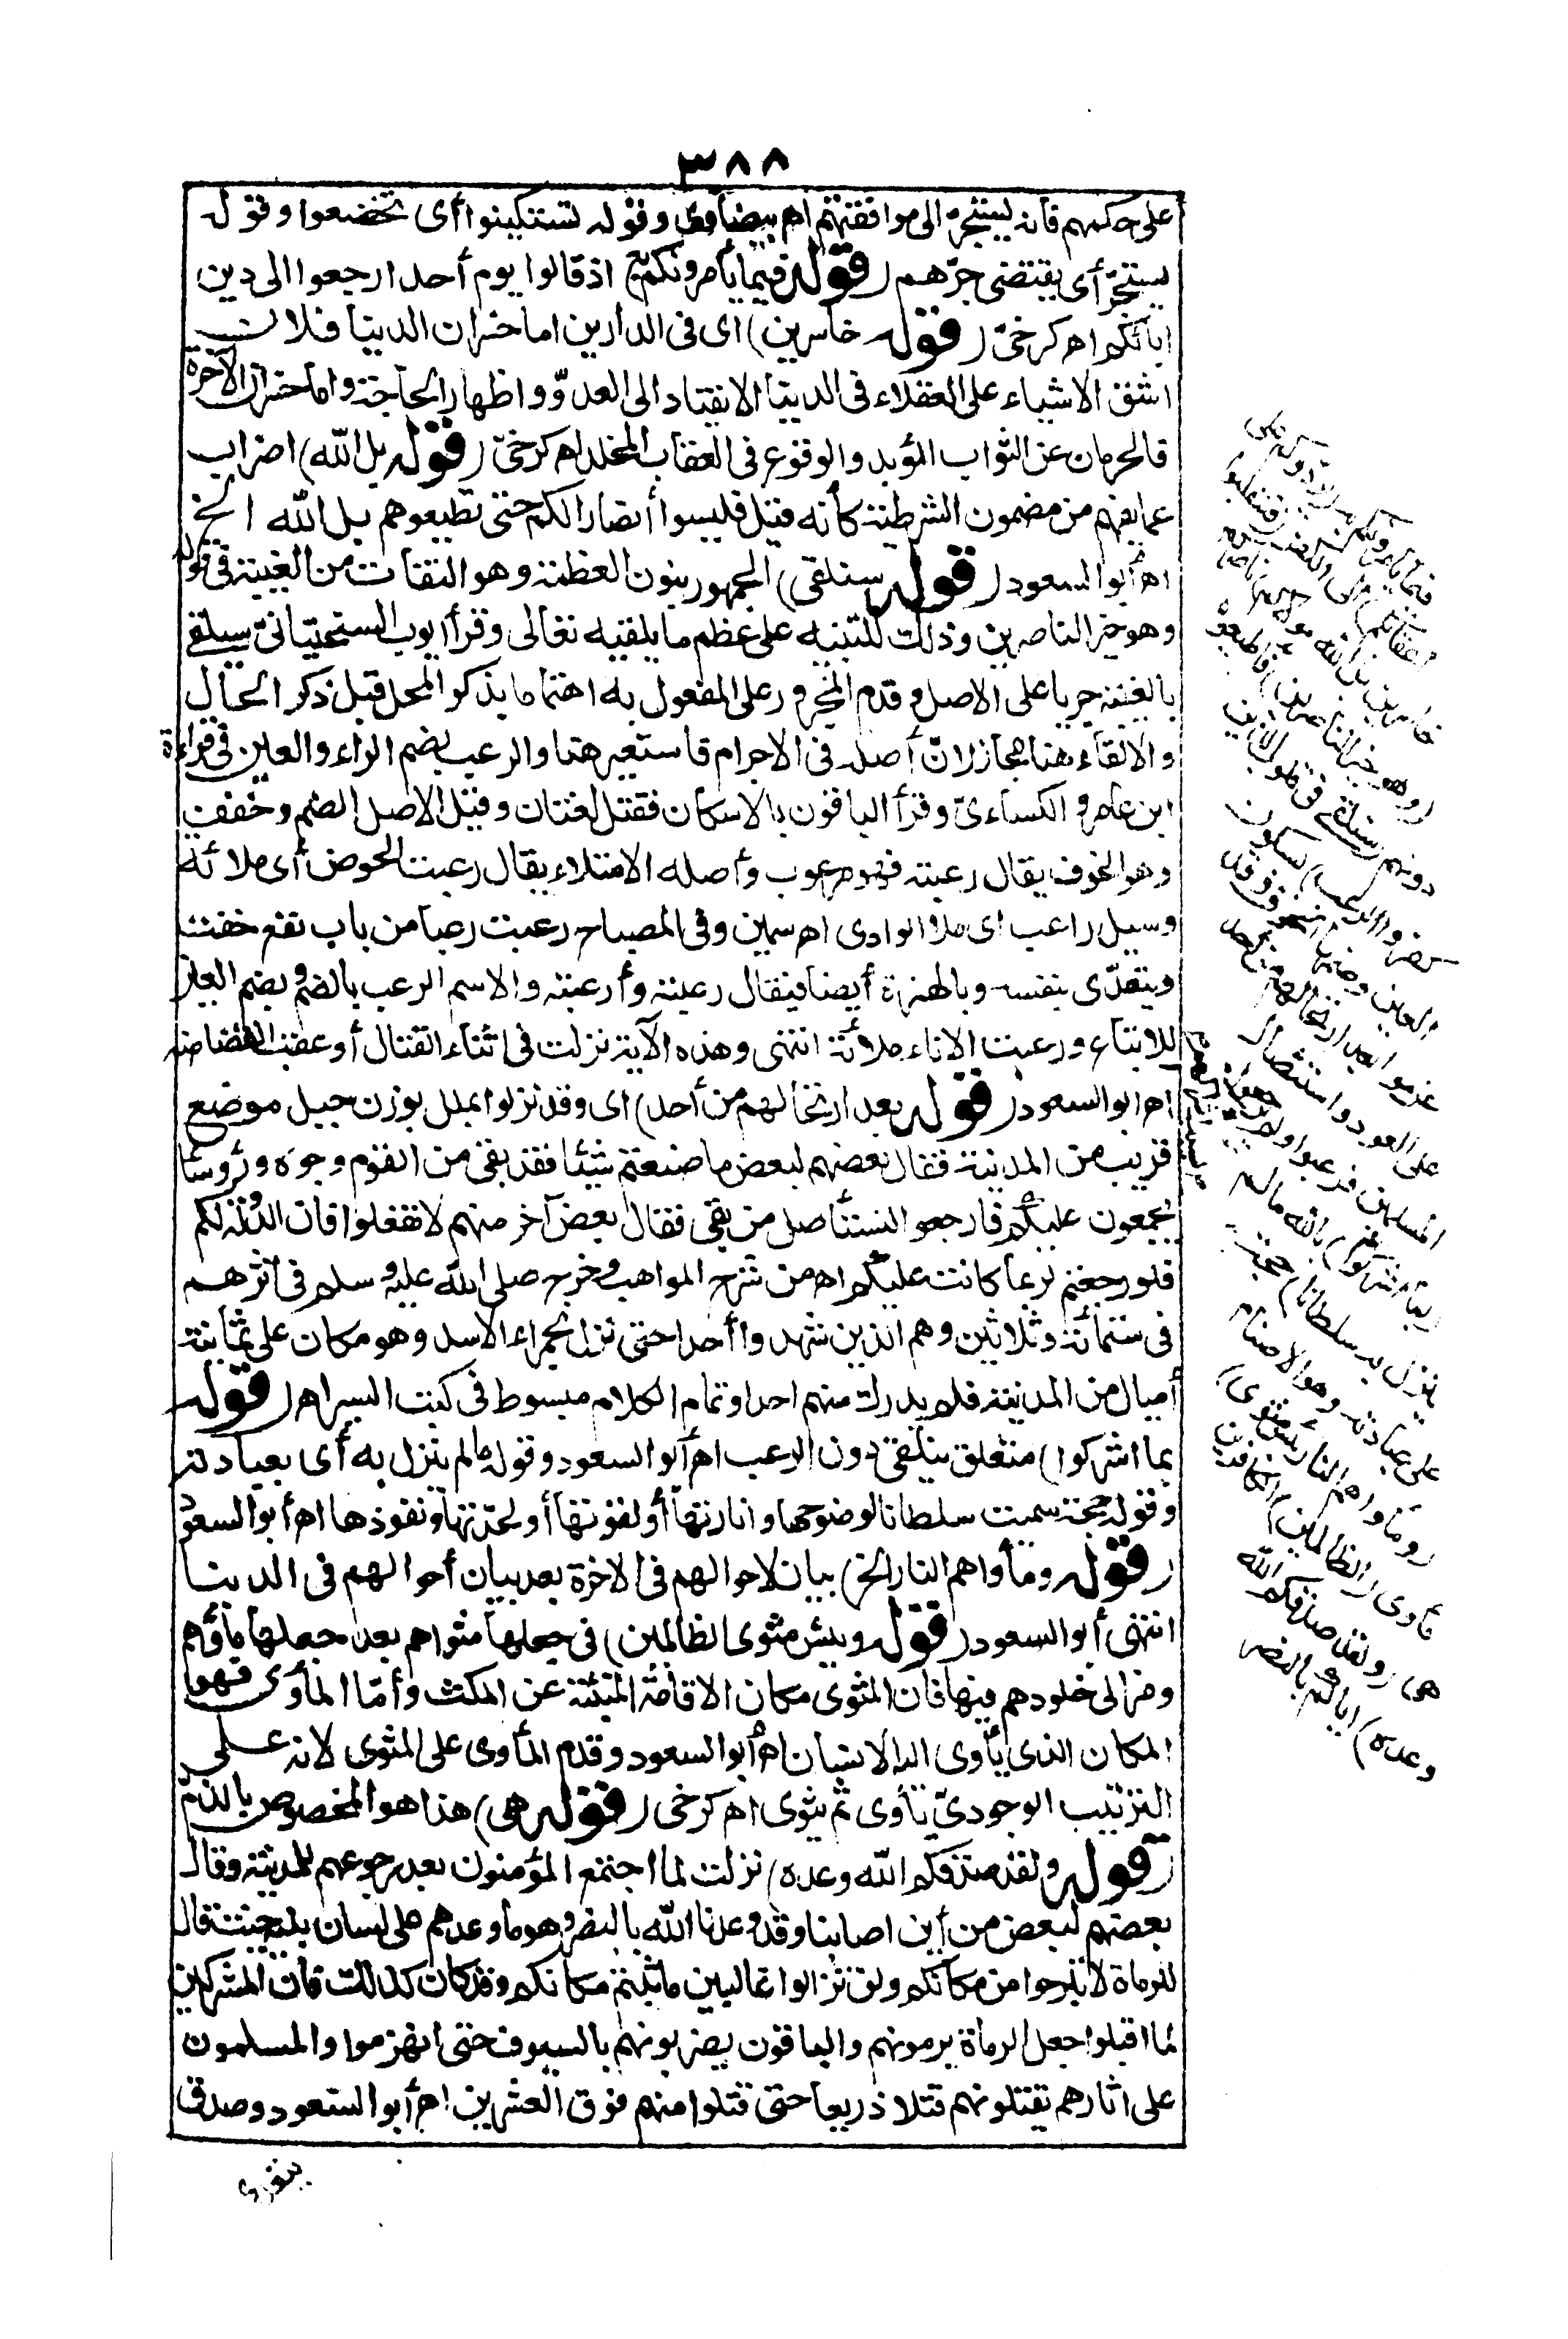 ٣٨٨
على حكمهم فانه ليستجر الى موافقتهم اه بيضاوى وقوله تستكينوا أى تخضعوا وقوله
يستجرّ أى يقتضى جرّهم (قوله فيما يأمرونكم به) اذ قالوا يوم أحد ارجعوا الى دين
ابائكم اه كرخىّ (قوله خاسرين) اى فى الدارين اما خسران الدنيا فلان
اشق الاشياء على العقلاء فى الدنيا الانقياد الى العدوّ واظهار الحاجة واما خسران الآخرة
فالحرمان عن الثواب المؤبد والوقوع فى العقاب المخلد اه كرخىّ (قوله بل الله) اضراب
عما يفهم من مضمون الشرطية كأنه قيل فليسوا أنصارا لكم حتى تطيعوهم بل الله الخ
اه أبو السعود (قوله سنلقى) الجمهور بنون العظمة وهو التفات من الغيبة فى قوله
وهو خير الناصرين وذلك للتنبيه على عظم ما يلقيه تعالى وقرأ ايوب السختيانىّ سيلقى
بالغيبة جريا على الاصل وقدم المجرور على المفعول به اهتماما بذكر المحل قبل ذكر الحال
والالقاء هنا مجاز لانّ أصله فى الاجرام فاستعير هنا والرعب بضم الراء والعين فى قراءة
ابن عامر والكساءىّ وقرأ الباقون بالاسكان فقيل لغتان وقيل الاصل الضم وخفف
وهو الخوف يقال رعبته فهو مرعوب وأصله الامتلاء يقال رعبت الحوض أى ملاته
وسيل راعب اى ملا الوادى اه سمين وفى المصباح رعبت رعبا من باب نفع خفت
ويتعدّى بنفسه وبالهمزة أيضا فيقال رعبته وأرعبته والاسم الرعب بالضم وبضم العين
للاتباع ورعبت الاناء ملأته انتهى وهذه الآية نزلت فى اثناء القتال أو عقب انقضاضه
اه ابو السعود (قوله بعد ارتحالهم من أحد) اى وقد نزلوا بملل بوزن جبل موضع
قريب من المدينة فقال بعضهم لبعض ما صنعتم شيئا فقد بقى من القوم وجوه ورؤسا
يجمعون عليكم فارجعوا نستأصل من بقى فقال بعض آخر منهم لا تفعلوا فان الدولة لكم
فلو رجعتم لربما كانت عليكم اه من شرح المواهب وخرج صلى الله عليه وسلم فى أثرهم
فى ستمائة وثلاثين وهم الذين شهدوا أحدا حتى نزل بحمراء الاسد وهو مكان على ثمانية
أميال من المدينة فلم يدرك منهم احدا وتمام الكلام مبسوط فى كتب السير اه (قوله
بما اشركوا) متعلق بنلقى دون الرعب اه أبو السعود وقوله ما لم ينزل به أى بعبادته
وقوله حجة سميت سلطانا لوضوحها وانارتها أو لقوتها أو لحدّتها ونفوذها اه أبو السعود
(قوله ومأواهم النار الخ) بيان لاحوالهم فى الاخرة بعد بيان أحوالهم فى الدنيا
انتهى أبو السعود (قوله وبئس مثوى الظالمين) فى جعلها مثواهم بعد جعلها مأواهم
رمز الى خلودهم فيها فان المثوى مكان الاقامة المنبئة عن المكث وأمّا المأوى فهو
المكان الذى يأوى اليه الانسان اه أبو السعود وقدم المأوى على المثوى لانه على
الترتيب الوجودىّ يأوى ثم يثوى اه كرخى (قوله هى) هذا هو المخصوص بالذم
(قوله ولقد صدقكم الله وعده) نزلت لما اجتمع المؤمنون بعد رجوعهم للمدينة وقال
بعضهم لبعض من أين اصابنا وقد وعدنا الله بالنصر وهو ما وعدهم على لسان نبيه حيث قال
للرماة لا تبرحوا من مكانكم ولن نزالوا غالبين ما ثبتم مكانكم وقد كان كذلك فان المشركين
لما اقبلوا جعل الرماة يرمونهم والباقون يضربونهم بالسيوف حتى انهزموا والمسلمون
على اثارهم يقتلونهم قتلا ذريعا حتى قتلوا منهم فوق العشرين اه أبو السعود وصدق
فيما يأمرونكم به
أعقابكم) الى الكفر (فتنقلبوا
خاسرين بل الله مولاكم) ناصركم
(وهو خير الناصرين) فأطيعوه
دونهم (سنلقى فى قلوب الذين
كفروا الرعب) بسكون
العين وضمها الخوف وقد
عزموا بعد ارتحالهم من أحد
على العود واستئصال
المسلمين فرعبوا ولم يرجعوا
(بما اشركوا) بالله ما لم
ينزل به سلطانا) حجة
على عبادته وهو الاصنام
(ومأواهم النار وبئس مثوى)
مأوى (الظالمين) الكافرين
هى (ولقد صدقكم الله
وعده) اياكم بالنصر